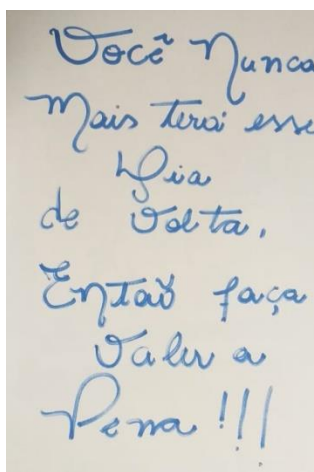 Você Nunca
Mais terá esse
Dia
de Volta,
Então faça
Valer a
Pena!!!